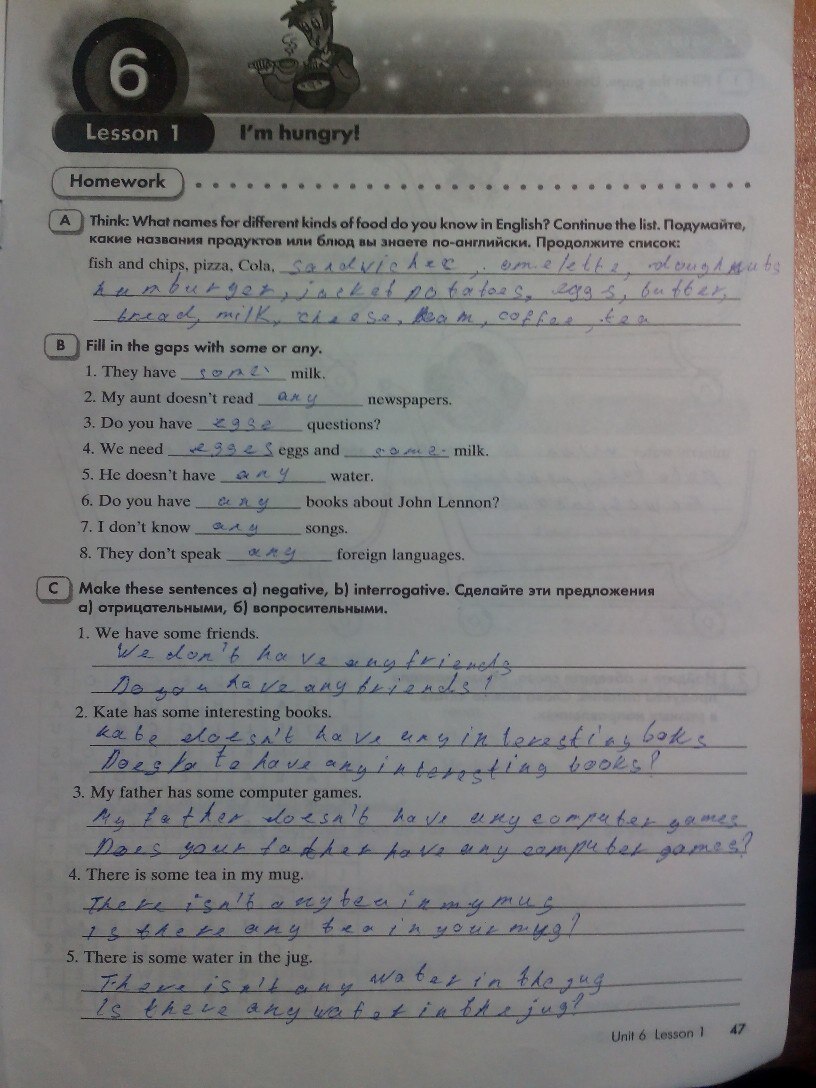 6
Lesson 1 I'm hungry!
Homework
A Think: What names for different kinds of food do you know in English? Continue the list. Подумайте,
какие названия продуктов или блюд вы знаете по-английски. Продолжите список:
fish and chips, pizza, Cola, sandviches, omelette, doughnuts
hamburger, jacket potatoes, eggs, butter,
bread, milk, cheese, ham, coffee, tea
B Fill in the gaps with some or any.
1. They have some milk.
2. My aunt doesn't read any newspapers.
3. Do you have egge questions?
4. We need egges eggs and some milk.
5. He doesn't have any water.
6. Do you have any books about John Lennon?
7. I don't know any songs.
8. They don't speak any foreign languages.
C Make these sentences a) negative, b) interrogative. Сделайте эти предложения
а) отрицательными, б) вопросительными.
1. We have some friends.
We don't have any friends
Do you have any friends?
2. Kate has some interesting books.
Kate doesn't have any interesting boks
Does Kate have any interesting books?
3. My father has some computer games.
My father doesn't have any computer games
Does your father have any computer games?
4. There is some tea in my mug.
There isn't any tea in my mug
Is there any tea in your mug?
5. There is some water in the jug.
There isn't any water in the jug
Is there any water in the jug?
Unit 6 Lesson 1 47